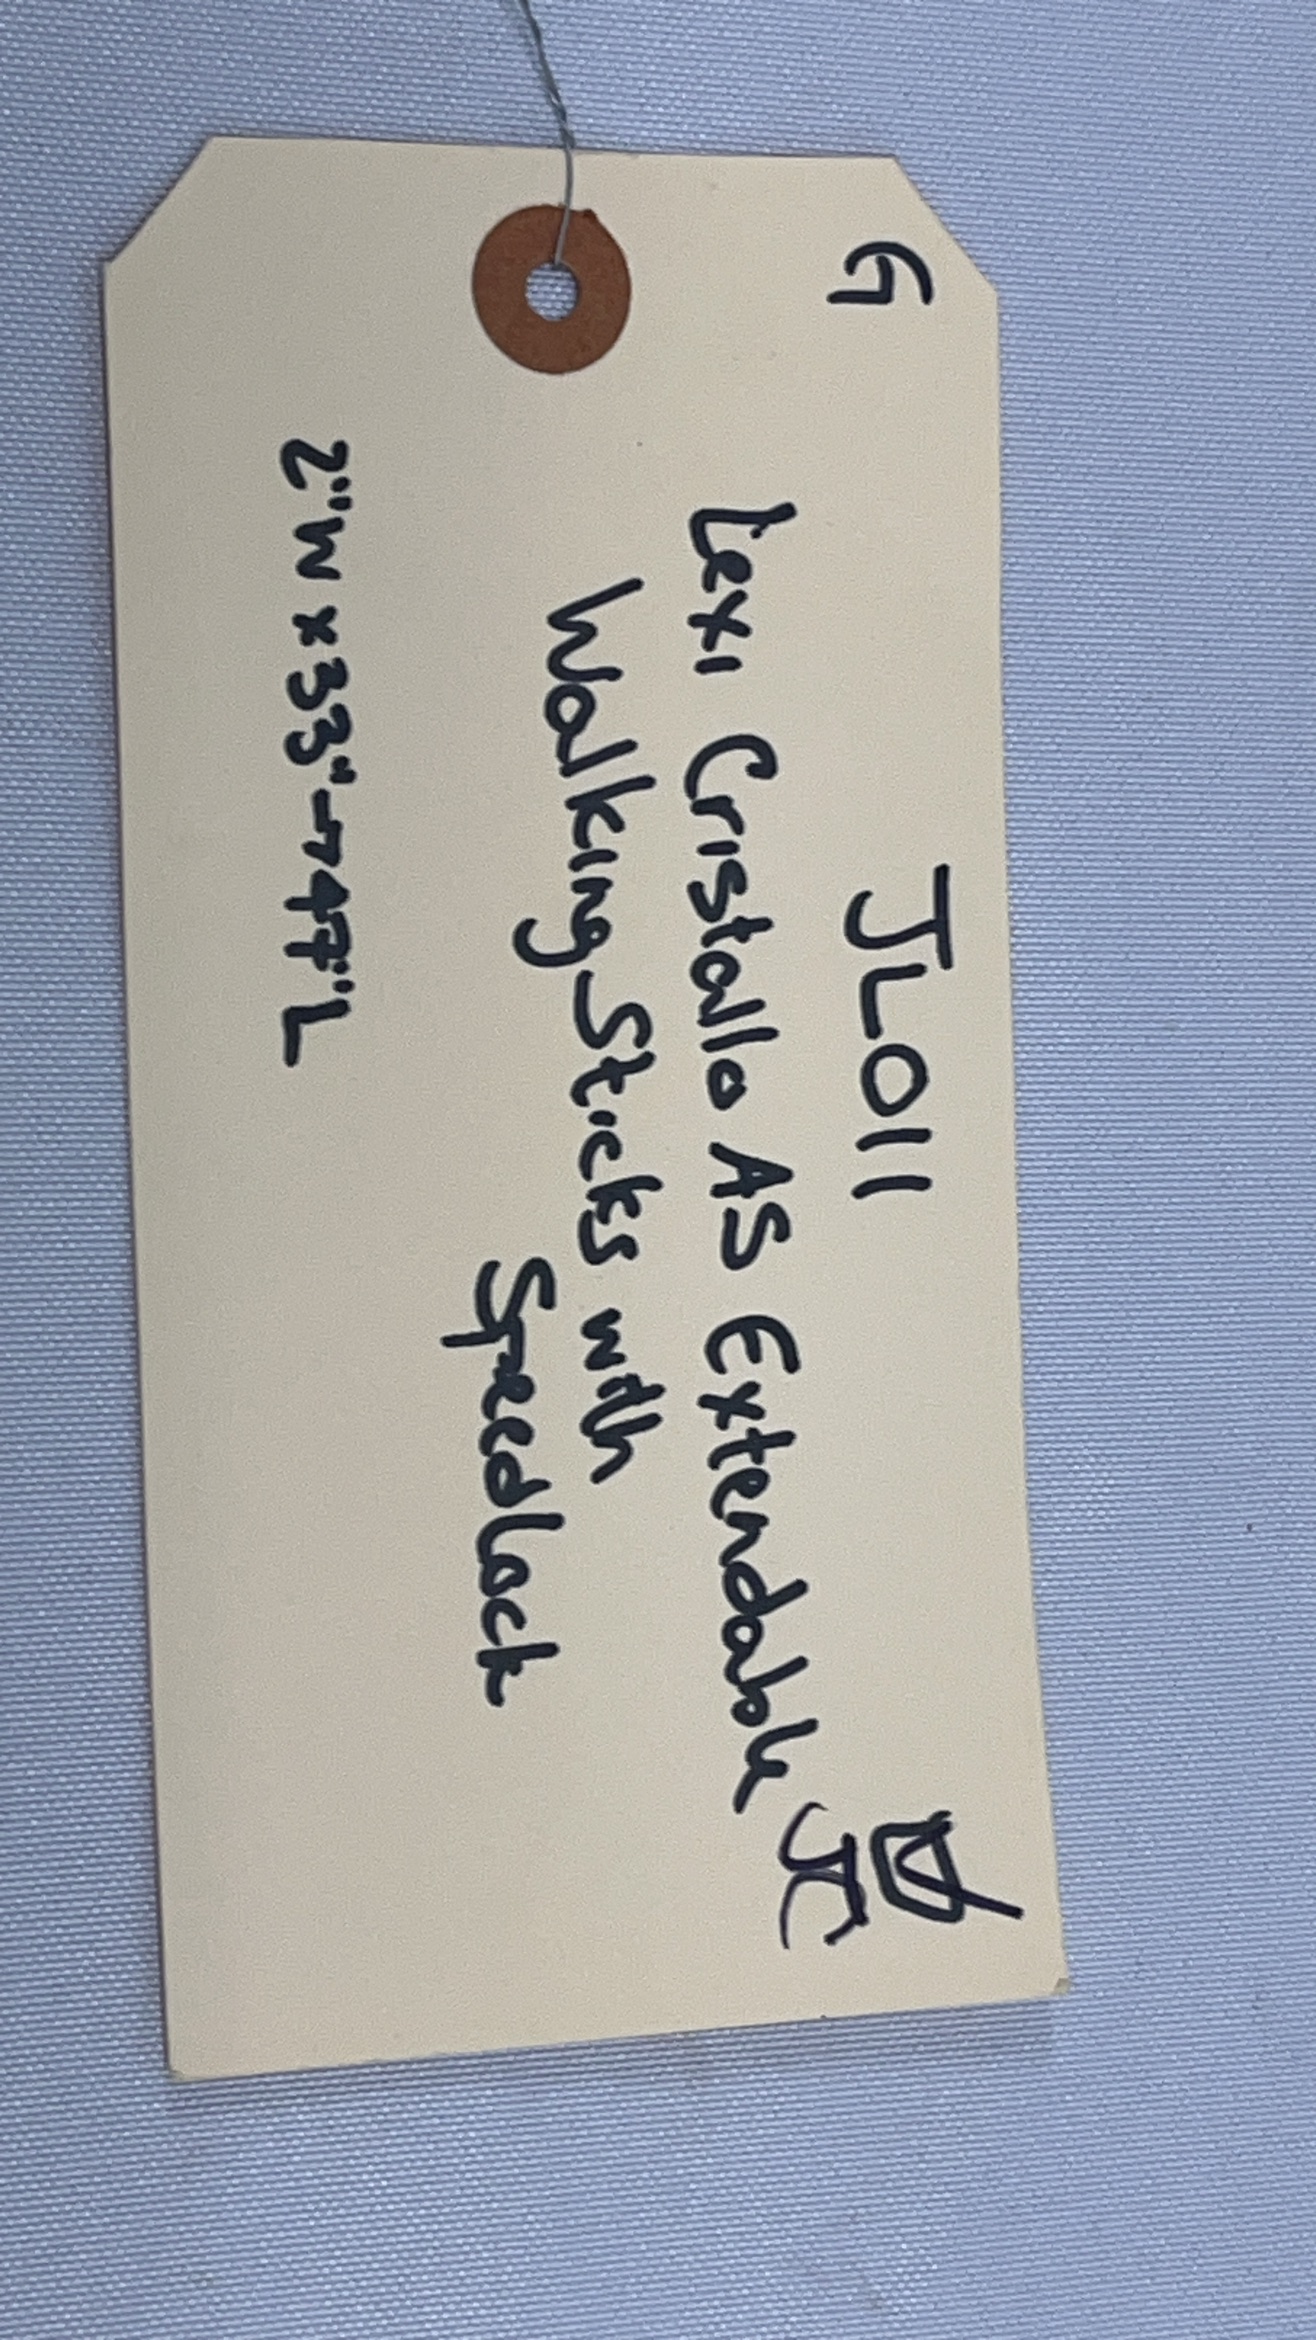 G
JL011
Lexi Cristallo AS Extendable
JC
Walking Sticks with
Speedlock
2"W x 33"→47"L